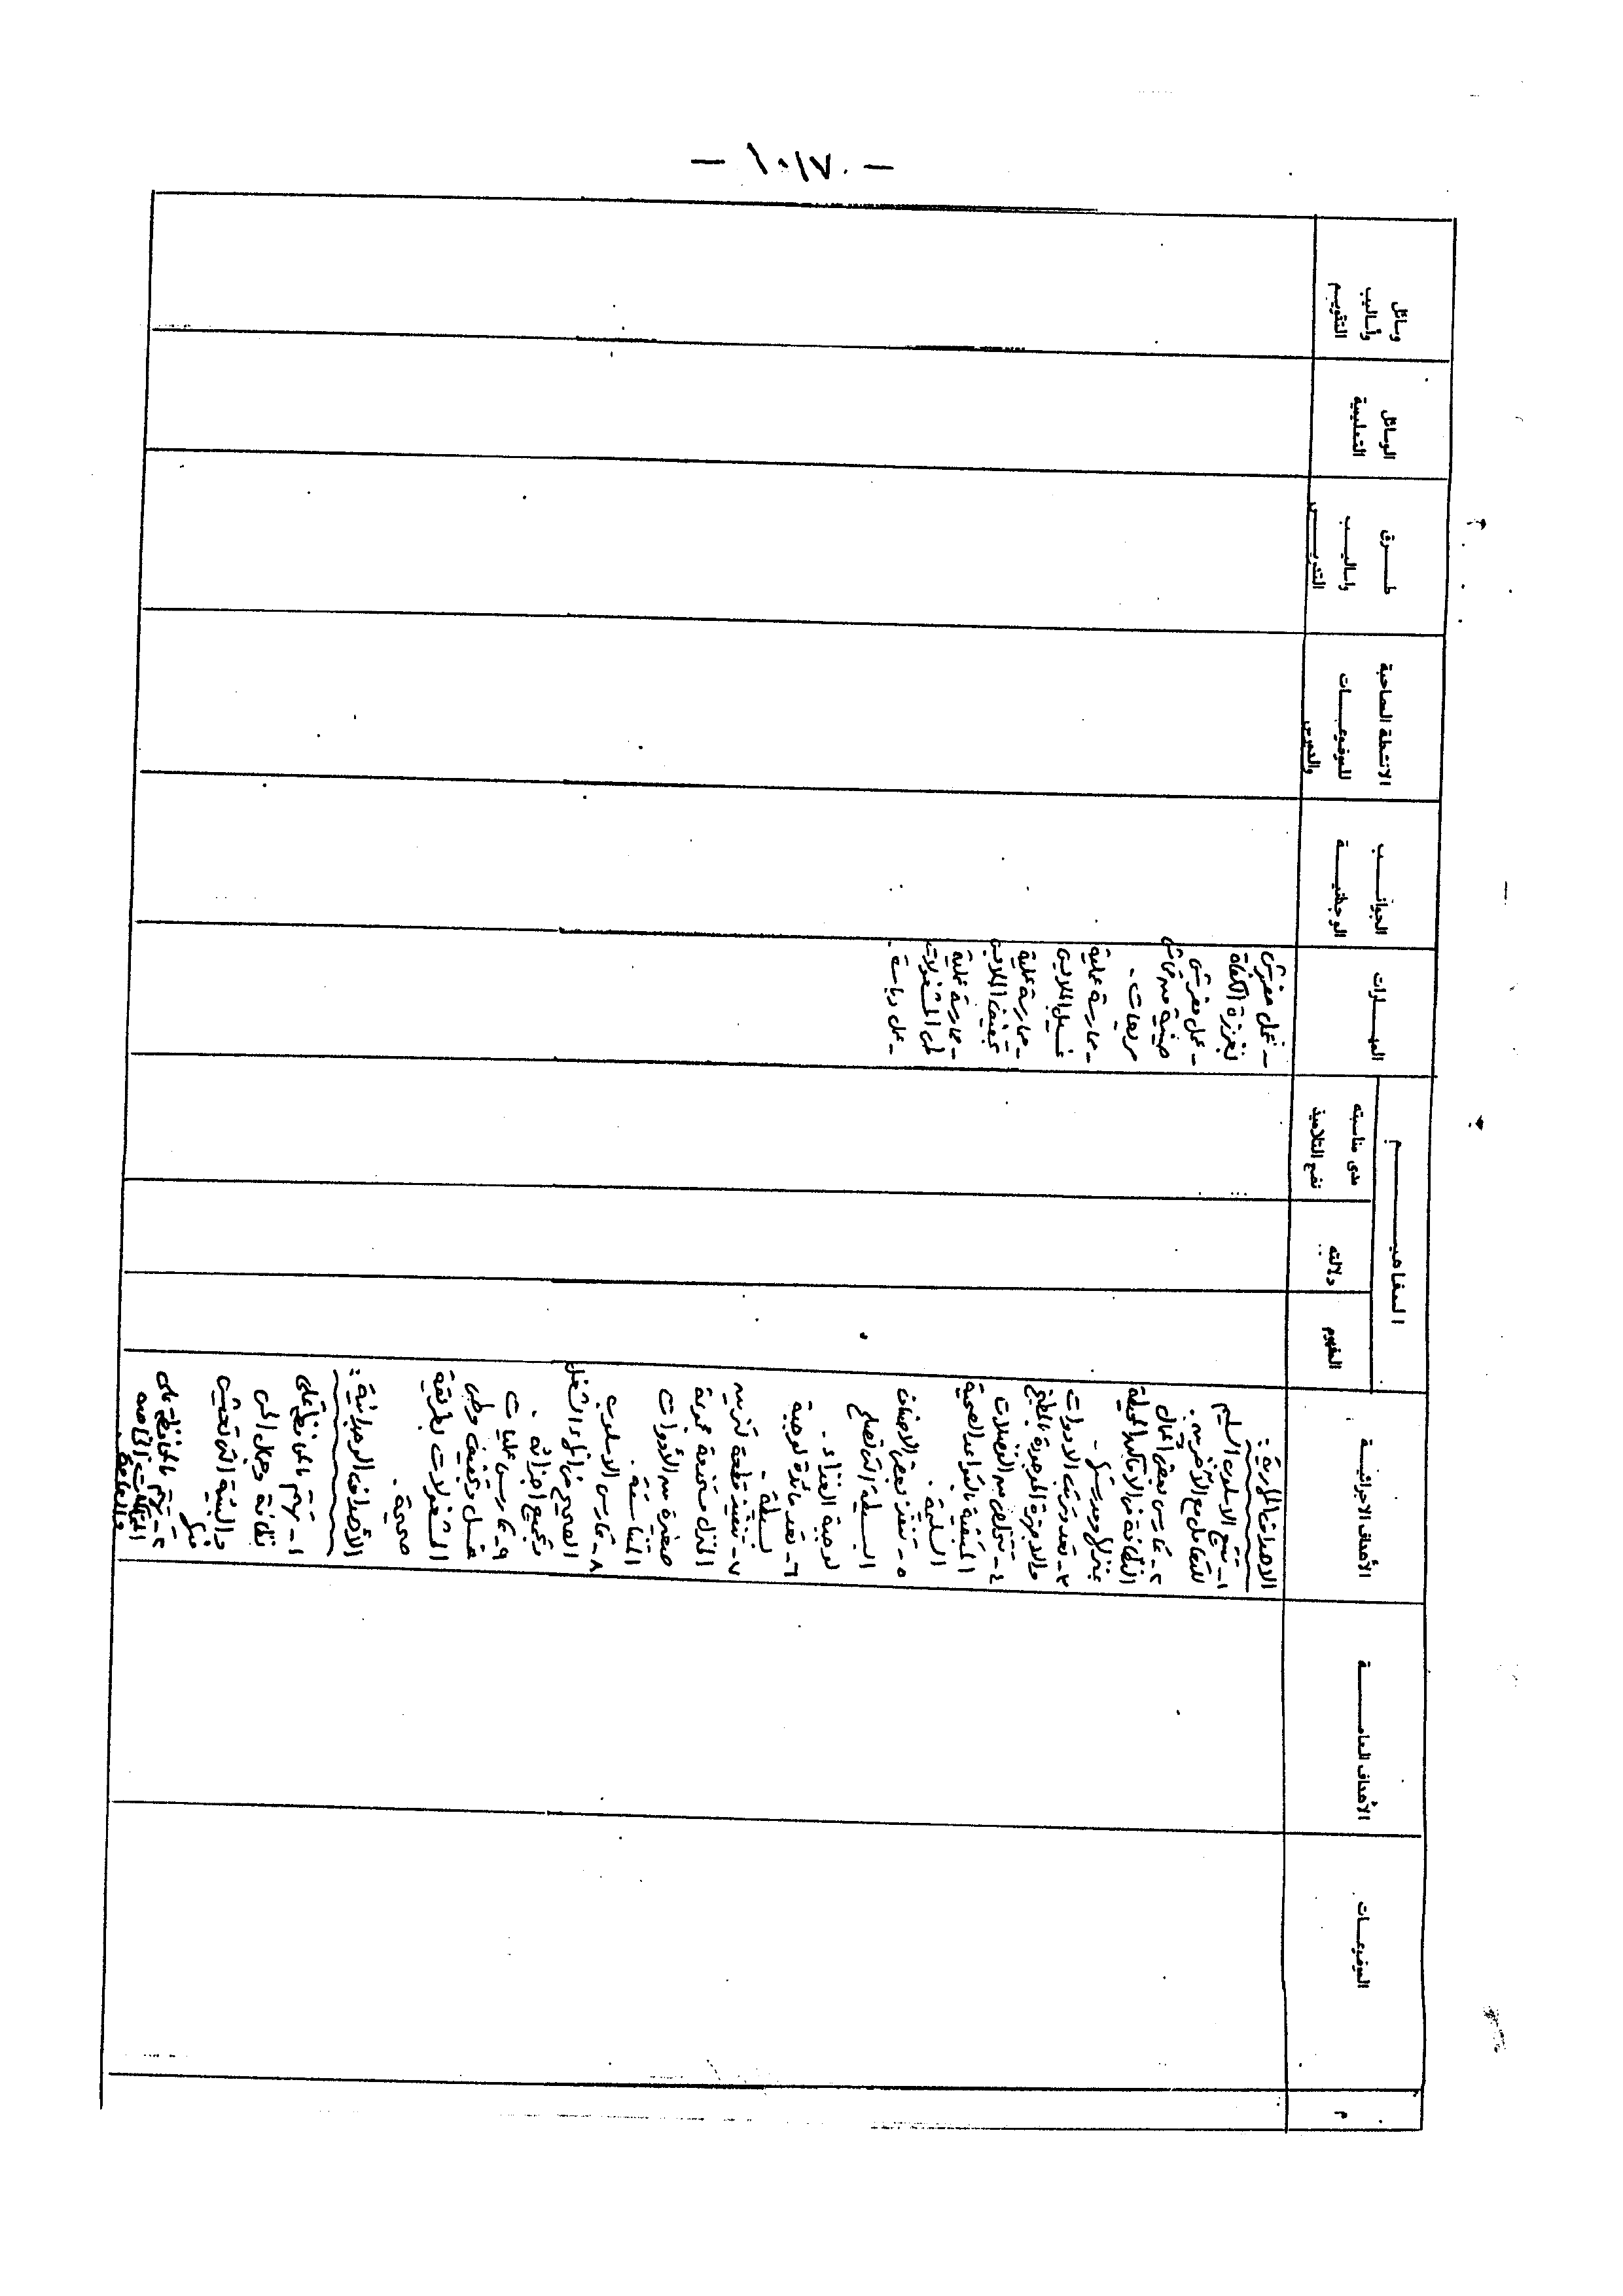 — ١٠١٧ —
م
الموضوعات
الأهداف العامة
الأهداف الاجرائية
المفاهيم
المفهوم
دلالته
مدى مناسبته
نضج التلاميذ
المهارات
الجوانب
الوجدانية
الانشطة المصاحبة
للموضوعات
والدروس
طرق
واساليب
التدريس
الوسائل
التعليمية
وسائل
وأساليب
التقويم
الاهداف المهارية :
١- تتبع الاسلوب السليم
للتعامل مع الآخرين .
٢- تمارس بعض أعمال
النظافة فى الأماكن المحيطة
بمنزلى ومدرستى .
٣- تعدد وترتب الادوات
والاجهزة الموجودة بالمطبخ
٤- تتخلص من الفضلات
المتبقية بالقواعد الصحية
السليمة .
٥- تنفذ بعض الاصناف
البسيطة التى تصلح
لوجبة الغذاء .
٦- تعد مائدة لوجبة
بسيطة .
٧- تنفيذ قطعة لتزيين
المنزل مستخدمة مجموعة
صغيرة من الأدوات
المناسبة .
٨- تمارس الاسلوب
الصحيح فى أداء الشغل
وتجميع اجزائه .
٩- تمارس عمليات
غسل وتجفيف وطى
المشغولات بطريقة
صحيحة .
الأهداف الوجدانية :
١- تهتم بالمحافظة على
نظافة وجمال الحى
والبيئة التى تعيش
فيها
٢- تهتم بالمحافظة على
الممتلكات الخاصة
والعامة .
- عمل مفرش
بغرزة الكنفاة
- عمل مفرش
صينية من قماش
مربعات .
- ممارسة عملية
غسيل الملابس
- ممارسة عملية
تجفيف الملابس
- ممارسة عملية
طى المشغولات
- عمل دباسة .